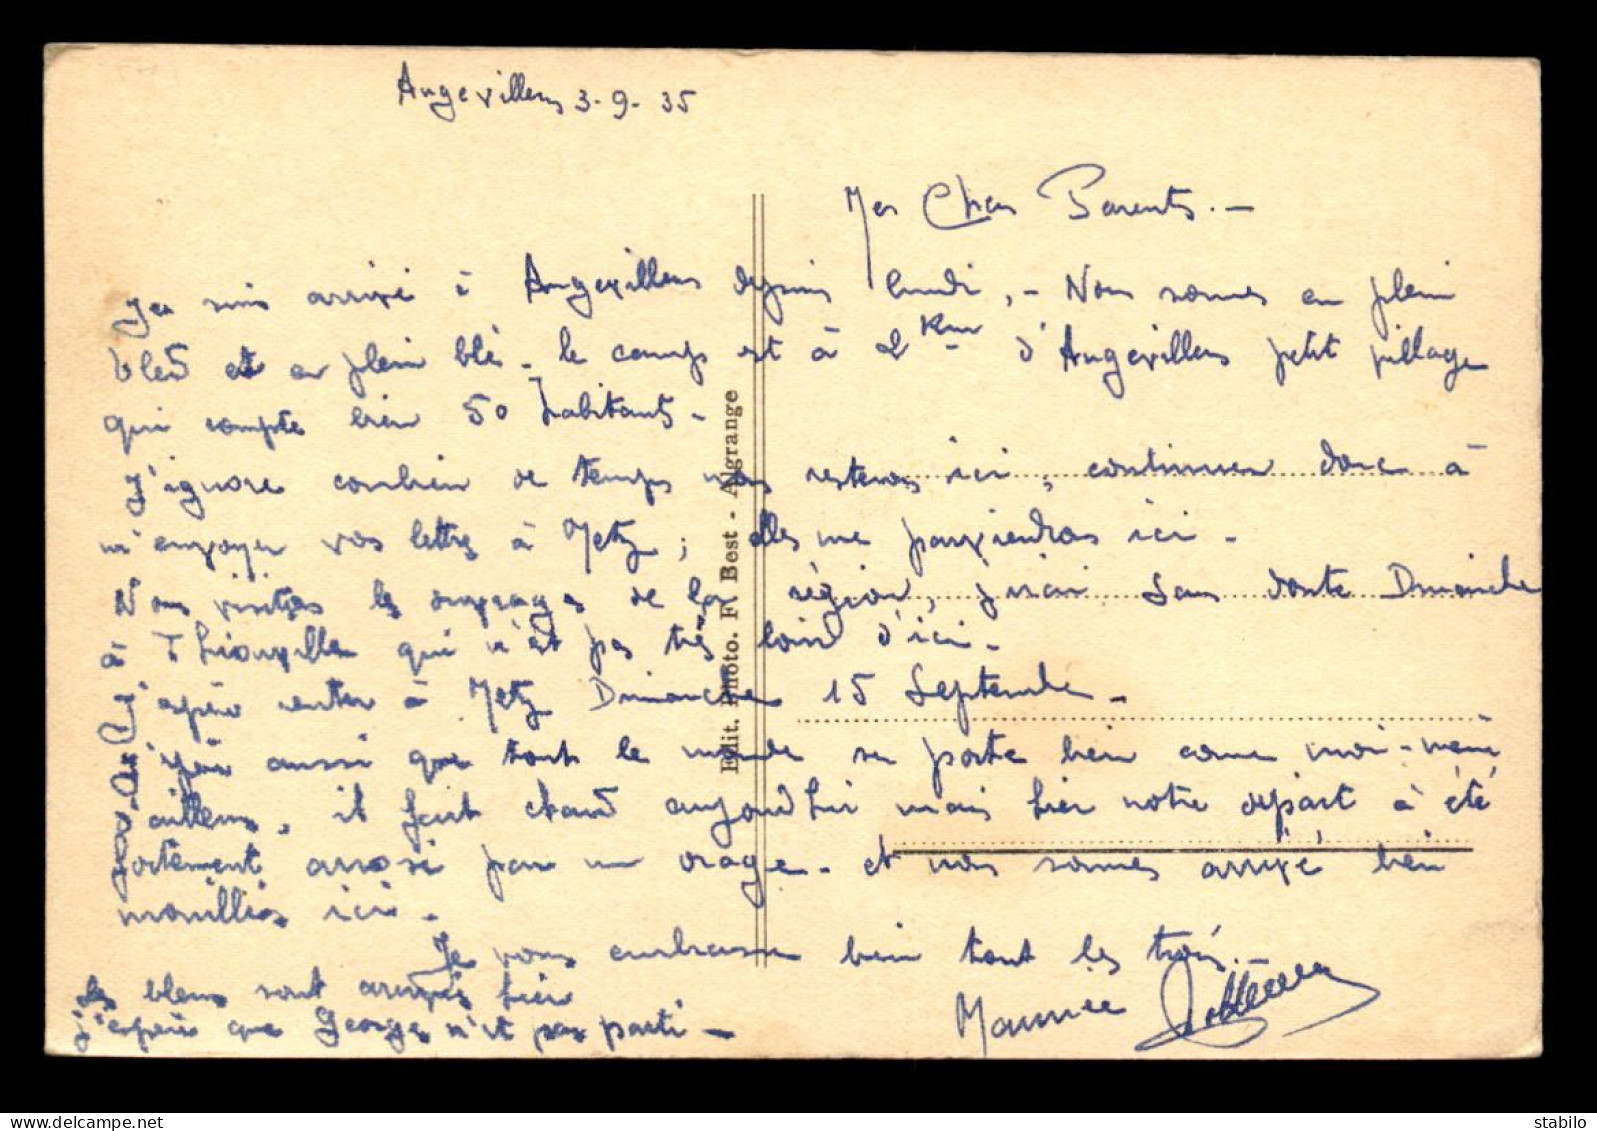 Angevillers 3-9-35
Mes Chers Parents.-
Je suis arrivé à Angevillers depuis lundi,- Nous sommes en plein
bled et en plein blé - le camp est à 2 Km d'Angevillers petit village
qui compte bien 50 habitants-
J'ignore combien de temps nous resterons ici, continuer donc à
m'envoyer vos lettres à Metz; elles me parviendras ici-
Nous visitons les ouvrages de la région, j'irai sans doute Dimanche
à Thionville qui n'est pas très loin d'ici-
J'espère rentrer à Metz Dimanche 15 Septembre-
J'espère aussi que tout le monde se porte bien comme moi-même
ailleurs, il fait chaud aujourd'hui mais hier notre départ à été
fortement arrosé par un orage- et nous sommes arrivé bien
mouillés ici-
Je vous embrasse bien tout les trois.-
Maurice
les bleus sont arrivés hier
j'espère que George n'est pas parti-
Edit. Photo. F. Best - Algrange
stabilo